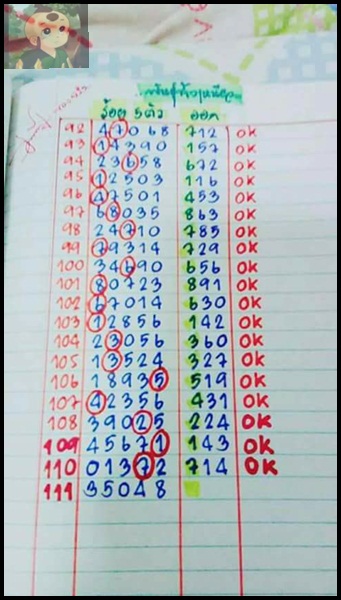 ร้อย 5ตัว ออก
92 47068 712 ok
93 14390 157 ok
94 23658 672 ok
95 12503 116 ok
96 47501 453 ok
97 68035 863 ok
98 24710 785 ok
99 79314 729 ok
100 34690 656 ok
101 80723 891 ok
102 67014 630 ok
103 12856 142 ok
104 23056 360 ok
105 13524 327 ok
106 18935 519 ok
107 42356 431 ok
108 39025 224 ok
109 45671 143 ok
110 01372 714 ok
111 35048